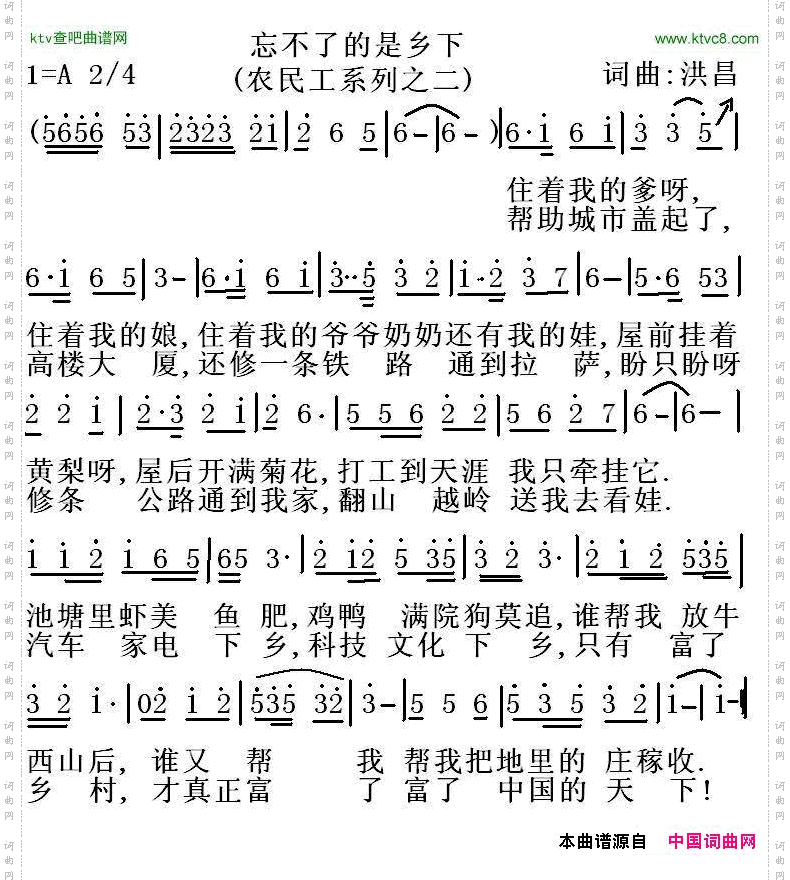 ktv查吧曲谱网
忘不了的是乡下
www.ktvc8.com
1=A 2/4
(农民工系列之二)
词曲:洪昌
(5656 53|2323 21|2 6 5|6-|6-)|6·1 6 1|3 3 5|
住着我的爹呀,
帮助城市盖起了,
6·1 6 5|3-|6·1 6 1|3··5 3 2|1·2 3 7|6-|5·6 53|
住着我的娘,住着我的爷爷奶奶还有我的娃,屋前挂着
高楼大 厦,还修一条铁 路 通到拉 萨,盼只盼呀
2 2 1|2·3 2 1|2 6·|5 5 6 2 2|5 6 2 7|6-|6-|
黄梨呀,屋后开满菊花,打工到天涯 我只牵挂它.
修条 公路通到我家,翻山 越岭 送我去看娃.
1 1 2 1 6 5|65 3·|2 12 5 35|3 2 3·|2 1 2 535|
池塘里虾美 鱼 肥,鸡鸭 满院狗莫追,谁帮我 放牛
汽车 家电 下 乡,科技 文化 下 乡,只有 富了
3 2 1·|02 1 2|535 32|3-|5 5 6|5 3 5 3 2|1-|1-|
西山后, 谁又 帮 我 帮我把地里的 庄稼收.
乡 村, 才真正富 了 富了 中国的 天 下!
本曲谱源自 中国词曲网